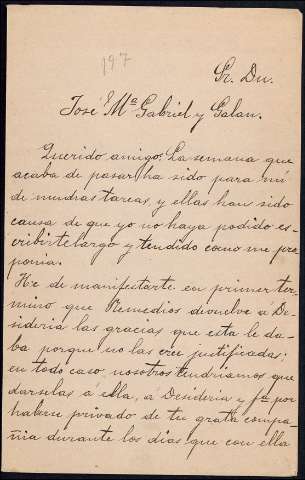 197
Sr. Dn.
José Mª Gabriel y Galan.
Querido amigo: La semana que
acaba de pasar ha sido para mí
de muchas tareas, y ellas han sido
causa de que yo no haya podido es-
cribirte largo y tendido como me pro-
ponia.
He de manifestarte en primer tér-
mino que Remedios devuelve a De-
sideria las gracias que esta le da-
ba porque no las cree justificadas;
en todo caso, nosotros tendriamos que
darselas á ella, a Desideria y por
haberse privado de tu grata compa-
ñia durante los dias que con ella